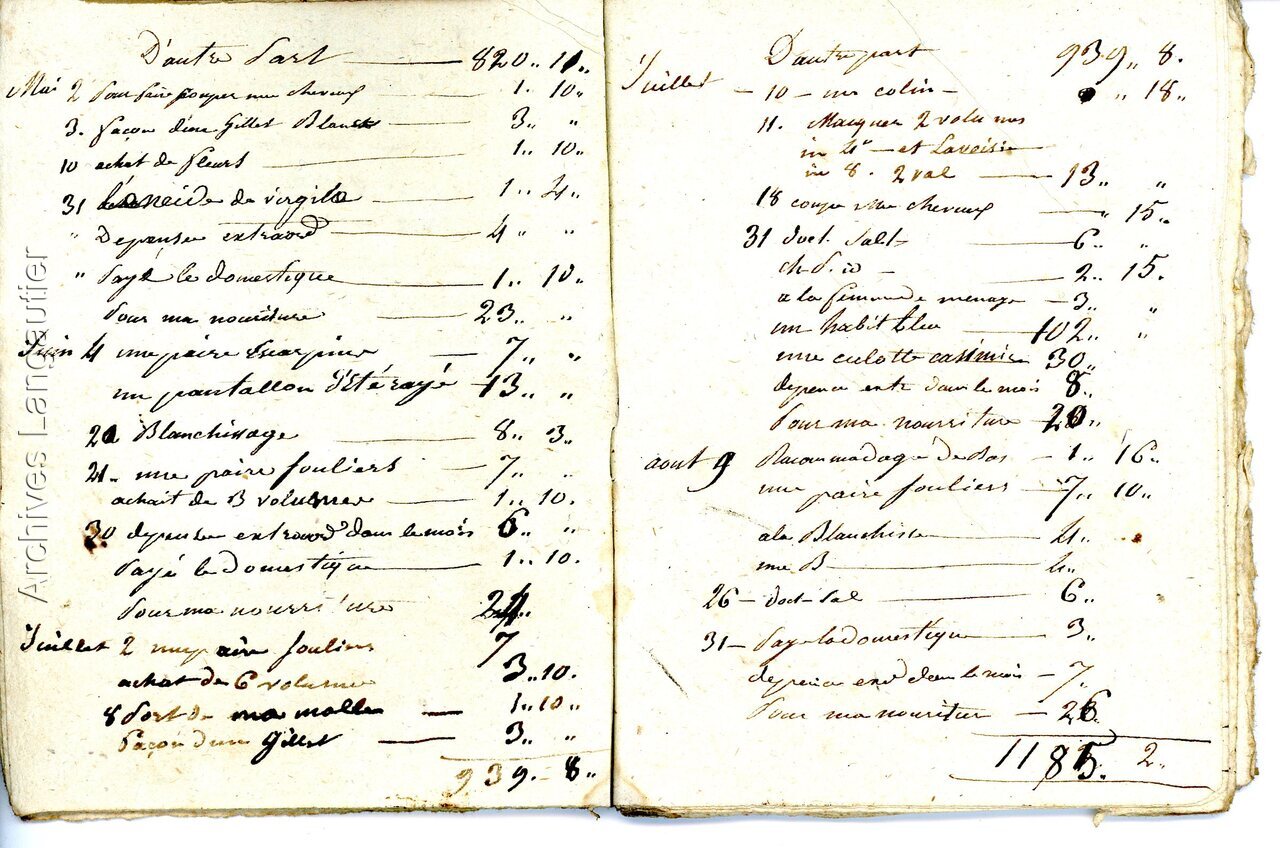 D'autre Part — 820.. 11..
Mai 2 Pour faire couper mes cheveux — 1.. 10..
3. façon d'un Gillet Blanc — 3.. "
10 achat de fleurs — 1.. 10..
31 l'aeneide de virgile — 1.. 4..
" Depense extraord — 4.. "
" Payé le domestique — 1.. 10..
Pour ma nouriture — 23.. "
Juin 4 une paire Escarpins — 7.. "
un pantallon d'Eté rayé — 13.. "
20 Blanchissage — 8.. 3..
21.. une paire souliers — 7.. "
achait de 3 volumes — 1.. 10.
30 depense extraord dans le mois 6.. "
Payé le Domestique — 1.. 10.
Pour ma nourriture 24..
Juillet 2 une paire souliers 7
achat de 6 volumes 3.. 10.
8 Port de ma malle — 1.. 10..
façon d'un Gillet — 3.. "
939. 8..
D'autre part 939.. 8.
Juillet — 10 — un colin — " 18..
11. Macquer 2 volumes
in 4° — et Lavoisier
in 8. 2 vol — 13.. "
18 coupe mes cheveux — " 15..
31 doct. Salt — 6.. "
— 2.. 15.
a la femme de menage — 3.. "
un habit bleu — 102.. "
une culotte casimir 30..
depence extr dans le mois 8..
Pour ma nourriture — 20..
aout 9 Racommodage de Bas — 1.. 16..
une paire souliers — 7.. 10..
a la Blanchiss — 4..
me B — 4..
26 — doct. Sal — 6..
31 — Payé la Domestique — 3..
depence ext dans le mois — 7..
Pour ma nouritur — 26.
1185. 2..
Archives Langautier